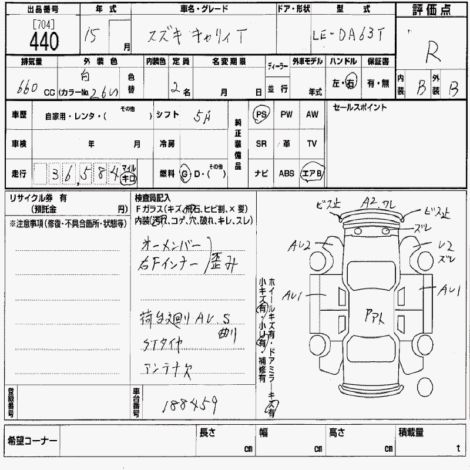 出品番号 年式 車名・グレード ドア・形状 型式 評価点
[704] 440 15 年 月 スズキ キャリィT LE-DA63T R
排気量 外装色 内装色 定員 名変期限 ディーラー 外車モデル ハンドル 保証書 内装 B 外装 B
660 CC 白 (カラーNo. 26U) 色 替 2名 月 日 並行 年 左・右 有・無
車歴 自家用・レンタ・( その他 ) シフト 5A 純正装備品 PS PW AW セールスポイント
車検 年 月 冷房 SR 革 TV
走行 36,584 マイル キロ 燃料 G・D・( その他 ) ナビ ABS エアB
リサイクル券 有 (預託金 円) 検査員記入
Fガラス(キズ,飛石,ヒビ割,×要)
※注意事項(修復・不具合箇所・状態等) 内装(汚れ,コゲ,穴,破れ,キレ,スレ)
オーメンバー
右Fインナー 歪み
荷台廻り AU.S
曲り
STタイヤ
アンテナ欠
ビス止 A2 ワレ ビス止
AU2 U2 ズレ
AU1 AU1
Pアト
ホイールキズ有・ドアミラーキズ有
小キズ有・小U有・補修有
登録番号 車台番号 188459
希望コーナー 長さ cm 幅 cm 高さ cm 積載量 t